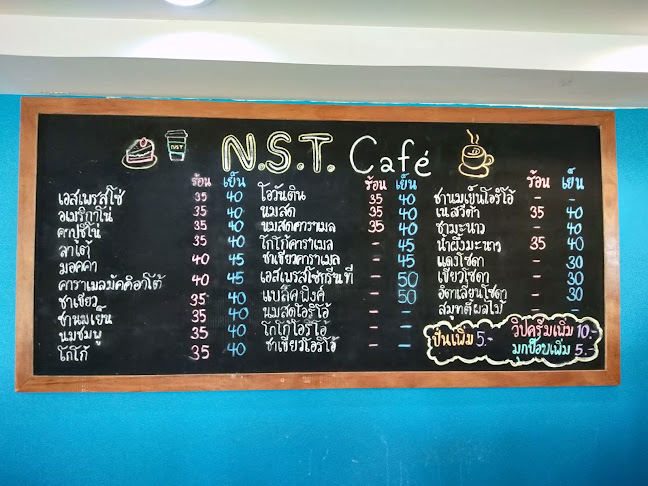 NST
N.S.T. Café
ร้อน เย็น
เอสเพรสโซ่ 35 40
อเมริกาโน่ 35 40
คาปูชิโน่ 35 40
ลาเต้ 35 40
มอคค่า 40 45
คาราเมลมัคคิอาโต้ 40 45
ชาเขียว 35 40
ชานมเย็น 35 40
นมชมพู 35 40
โกโก้ 35 40
ร้อน เย็น
โอวันติน 35 40
นมสด 35 40
นมสดคาราเมล 35 40
โกโก้คาราเมล - 45
ชาเขียวคาราเมล - 45
เอสเพรสโซ่กรีนที - 50
แบล็คพิงค์ - 50
นมสดโอริโอ้ - -
โกโก้โอริโอ้ - -
ชาเขียวโอริโอ้ - -
ร้อน เย็น
ชานมเย็นโอริโอ้ - -
เนสวีต้า 35 40
ชามะนาว - 40
น้ำผึ้งมะนาว 35 40
แดงโซดา - 30
เขียวโซดา - 30
อิตาเลี่ยนโซดา - 30
สมูทตี้ผลไม้ -
ปั่นเพิ่ม 5.-
วิปครีมเพิ่ม 10.-
มุกป๊อบเพิ่ม 5.-